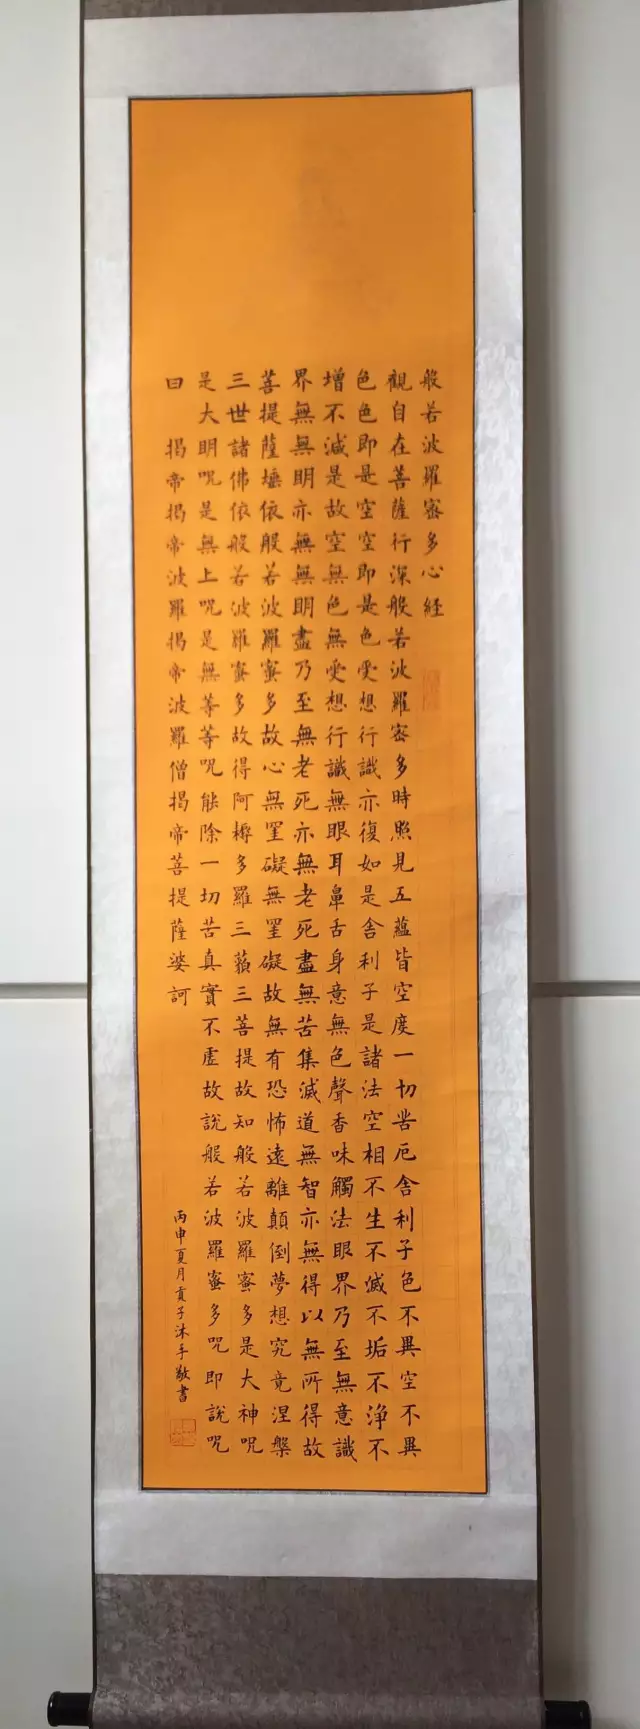 般若波羅密多心経
觀自在菩薩行深般若波羅密多時照見五蘊皆空度一切苦厄舍利子色不異空不異
色色即是空空即是色受想行識亦復如是舍利子是諸法空相不生不滅不垢不浄不
增不減是故空無色無受想行識無眼耳鼻舌身意無色聲香味觸法眼界乃至無意識
界無無明亦無無明盡乃至無老死亦無老死盡無苦集滅道無智亦無得以無所得故
菩提薩埵依般若波羅蜜多故心無罣礙無罣礙故無有恐怖遠離顛倒夢想究竟涅槃
三世諸佛依般若波羅蜜多故得阿耨多羅三藐三菩提故知般若波羅蜜多是大神咒
是大明咒是無上咒是無等等咒能除一切苦真實不虛故說般若波羅蜜多咒即說咒
曰 揭帝揭帝波羅揭帝波羅僧揭帝菩提薩婆訶
丙申夏月貢子沐手敬書